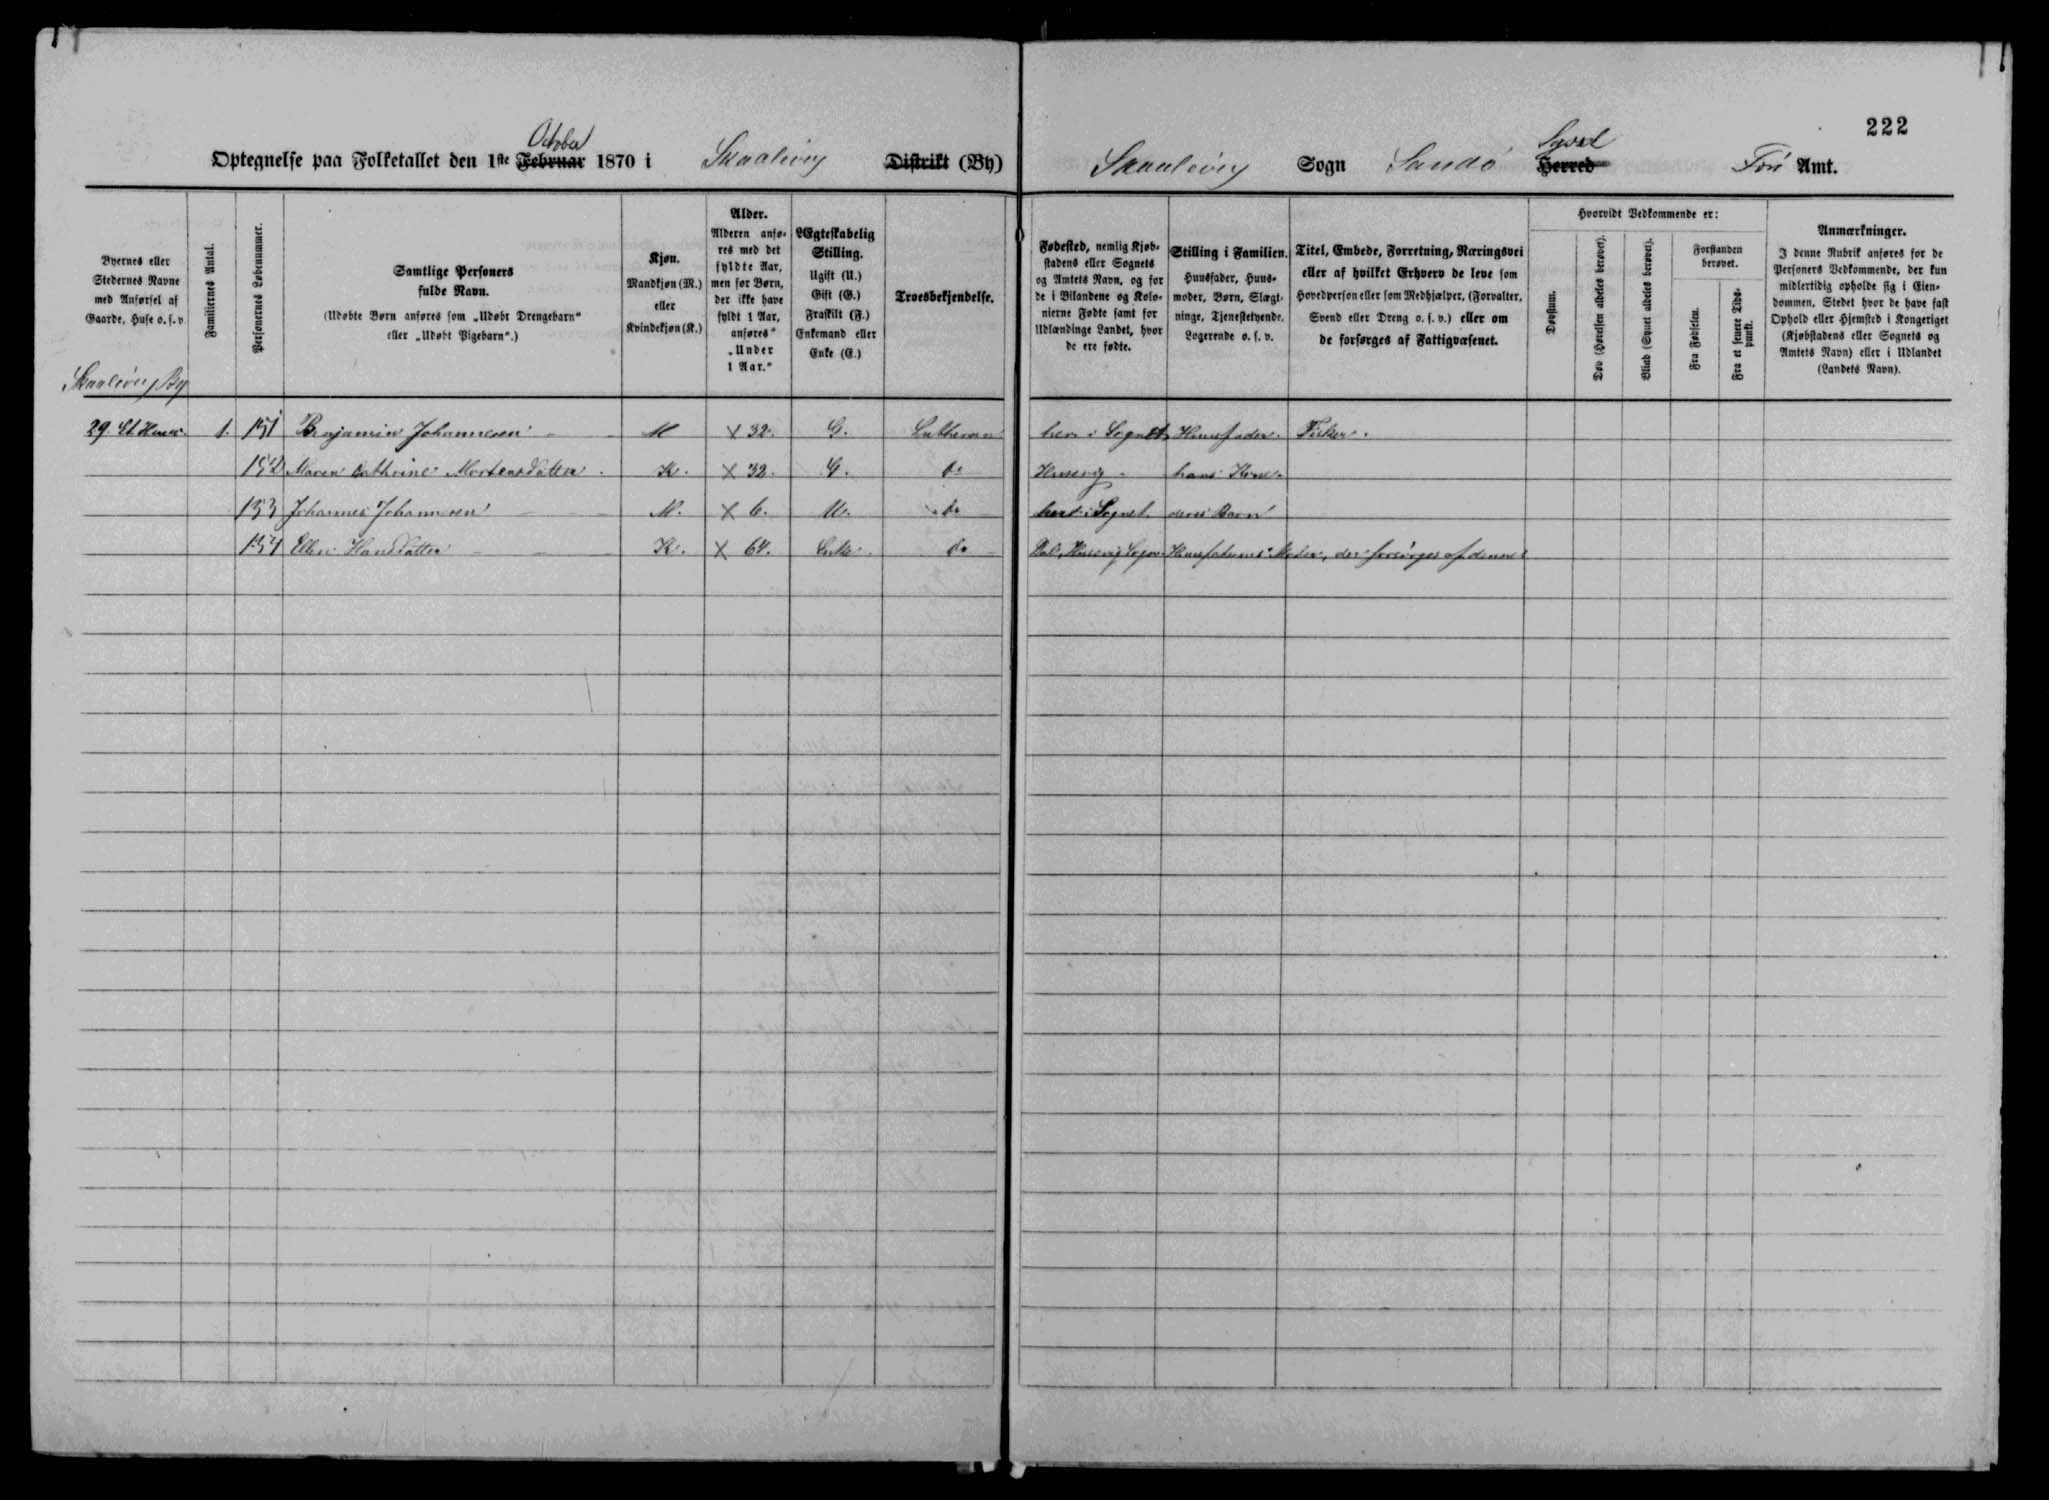 222
October
Optegnelse paa Folketallet den 1ste Februar 1870 i Skaalevig Distrikt (By)
Syssel
Skaalevig Sogn Sandö Herred Færø Amt.
Byernes eller Stedernes Navne med Anførsel af Gaarde, Huse o. s. v.
Familiernes Antal.
Personernes Løbenummer.
Samtlige Personers fulde Navn.
(Udøbte Børn anføres som „Udøbt Drengebarn“ eller „Udøbt Pigebarn“.)
Kjøn.
Mandkjøn (M.) eller Kvindekjøn (K.)
Alder.
Alderen anføres med det fyldte Aar, men for Børn, der ikke have fyldt 1 Aar, anføres „Under 1 Aar.“
Ægteskabelig Stilling.
Ugift (U.)
Gift (G.)
Fraskilt (F.)
Enkemand eller Enke (E.)
Troesbekjendelse.
Fødested, nemlig Kjøbstadens eller Sognets og Amtets Navn, og for de i Bilandene og Kolonierne Fødte samt for Udlændinge Landet, hvor de ere fødte.
Stilling i Familien.
Huusfader, Huusmoder, Børn, Slægtninge, Tjenestetyende, Logerende o. s. v.
Titel, Embede, Forretning, Næringsvei eller af hvilket Erhverv de leve som Hovedperson eller som Medhjælper, (Forvalter, Svend eller Dreng o. s. v.) eller om de forsørges af Fattigvæsenet.
Hvorvidt Vedkommende er:
Døvstum.
Døv (Hørelsen aldeles berøvet).
Blind (Synet aldeles berøvet).
Forstanden berøvet.
Fra Fødselen.
Fra et senere Tidspunkt.
Anmærkninger.
I denne Rubrik anføres for de Personers Vedkommende, der kun midlertidig opholde sig i Eiendommen, Stedet hvor de have fast Ophold eller Hjemsted i Kongeriget (Kjøbstadens eller Sognets og Amtets Navn) eller i Udlandet (Landets Navn).
Skaalevig By
29. Et Huus. 1. 151 Benjamin Johannesen M × 32. G. Lutheran her i Sognet Huusfader. Fisker.
152 Maren Cathrine Mortensdatter. K. × 32. G. do Husevig hans Kone.
153 Johannes Johannesen M. × 6. U. do her i Sognet. deres Barn
154 Ellen Hansdatter K. × 64. Enke. do Dal, Husevig Sogn. Huusfaderens Moder, der forsørges af denne